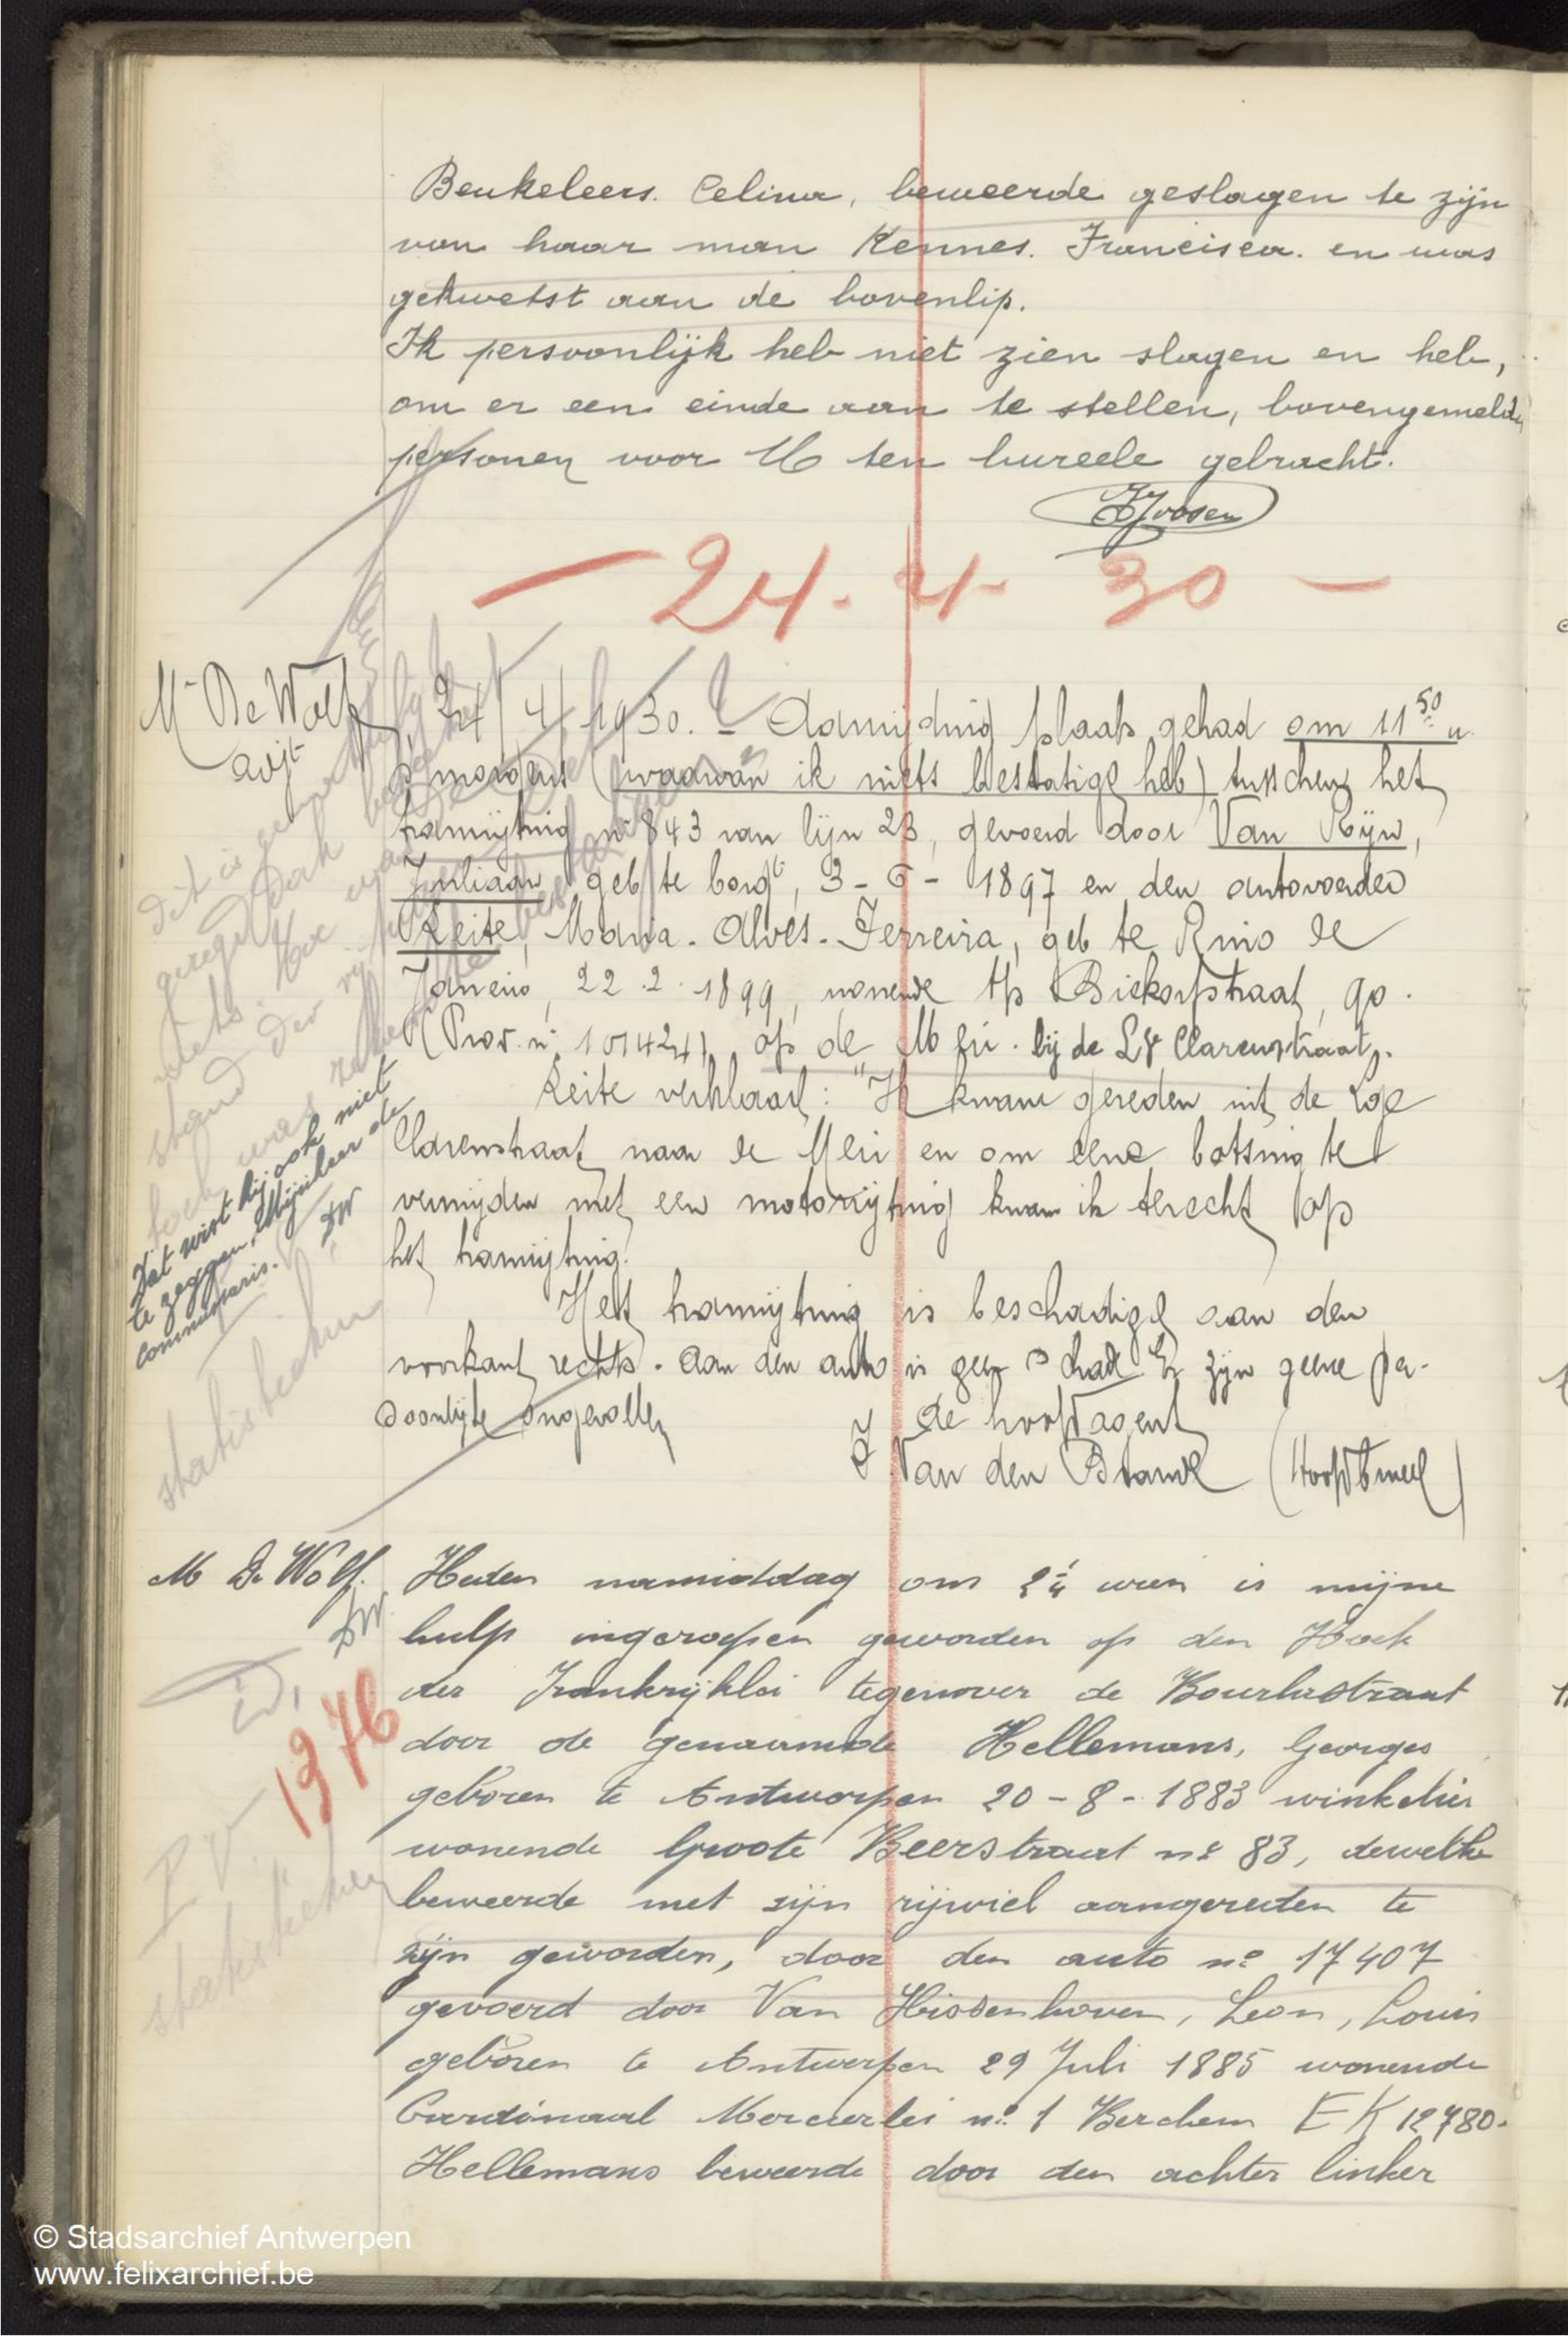 Beukeleers. Celina, beweerde geslagen te zijn
van haar man Kennes. Francisca. en was
gekwetst aan de bovenlip.
Ik persoonlijk heb niet zien slagen en heb,
om er een einde aan te stellen, bovengemelde
personen voor U ten bureele gebracht.
Joosen
- 24. 4. 30 -
Mr De Wolf
adjt
24/4/1930. - Aanrijding plaats gehad om 11 50 u
's morgens (waarvan ik niets bestatigd heb) tusschen het
tramrijtuig nr 843 van lijn 23, gevoerd door Van Rijn,
Juliaan geb te borgt, 3-6-1897 en den autovoerder
Leite, Maria. Alves. Ferreira, geb te Rio de
Janeiro, 22.2.1899, wonende Biekorfstraat, 90.
(Prov. nr 101424) op de Meir. bij de Lge Clarenstraat.
Leite verklaart: "Ik kwam gereden uit de Lge
Clarenstraat naar de Meir en om eene botsing te
vermijden met een motorrijtuig kwam ik terecht op
het tramrijtuig.
Het tramrijtuig is beschadigd aan den
voorkant rechts. Aan den auto is geen schade. Er zijn geene per-
soonlijke ongevallen
de hoofdagent
Van den Brande (Hoofdbureel)
Dat wist hij ook niet
te zeggen, Mijnheer de
Commissaris.
DW
statistieken
M De Wolf.
DW.
1976
P V
statistieken
Heden namiddag om 2 1/4 uren is mijne
hulp ingeroepen geworden op den Hoek
der Frankrijklei tegenover de Bourlastraat
door de genaamde Hellemans, Georges
geboren te Antwerpen 20-8-1883 winkelier
wonende Groote Beerstraat n° 83, dewelke
beweerde met zijn rijwiel aangereden te
zijn geworden, door den auto n° 17407
gevoerd door Van Hissenhoven, Leon, Louis
geboren te Antwerpen 29 Juli 1885 wonende
Cardinaal Mercierlei n° 1 Berchem E K 12780.
Hellemans beweerde door den achter linker
© Stadsarchief Antwerpen
www.felixarchief.be